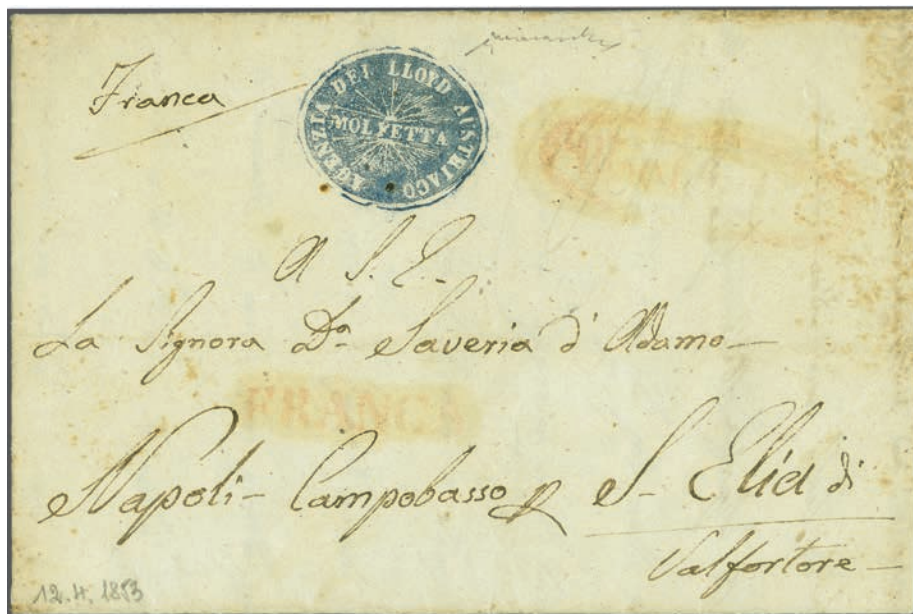 Franca
AGENZIA DEL LLOYD AUSTRIACO
MOLFETTA
A S. E.
La Signora Dª Saveria d' Adamo —
FRANCA
Napoli - Campobasso p S. Elia di
Valfortore —
12.4.1853